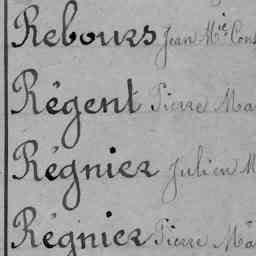 Rebours Jean Mie Cons
Régent Pierre Ma
Régnier Julien M
Régnier Pierre Ma